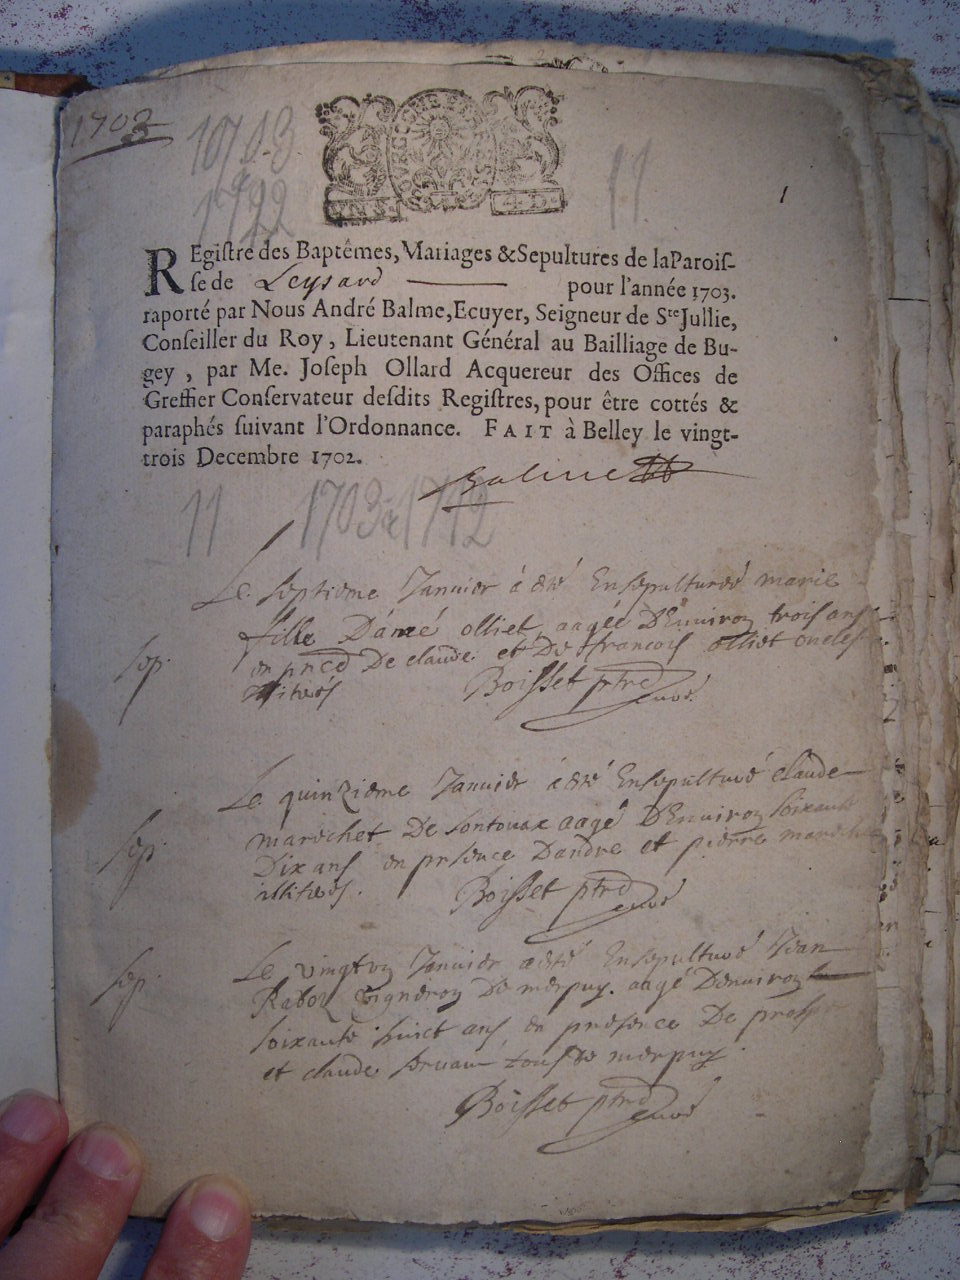 1703
1703
1722
11
1
4. D.
REgiſtre des Baptêmes, Mariages & Sepultures de la Paroiſ-
ſe de Leyſard pour l'année 1703.
raporté par Nous André Balme, Ecuyer, Seigneur de Ste Jullie,
Conſeiller du Roy, Lieutenant Général au Bailliage de Bu-
gey, par Me. Joſeph Ollard Acquereur des Offices de
Greffier Conſervateur deſdits Regiſtres, pour être cottés &
paraphés ſuivant l'Ordonnance. FAIT à Belley le vingt-
trois Decembre 1702.
Balme
11 1703 à 1712
Le septieme Janvier á eté Ensepultureé marie
fille D'amé olliet aageé D'Environ trois ans
sep. en pnce De claude et De francois olliet oncles
illiterés Boisset ptre curé
Le quinzieme Janvier á eté Ensepulturé claude
marechet De aagé D'Environ soixante
sep. Dix ans en presence D'andre et pierre
illiterés. Boisset ptre curé
sep. Le vingtun Janvier a eté Ensepulturé Jean
vigneron De merpuy. aagé D'environ
soixante huict ans en presence De
et claude tous De merpuy.
Boisset ptre curé